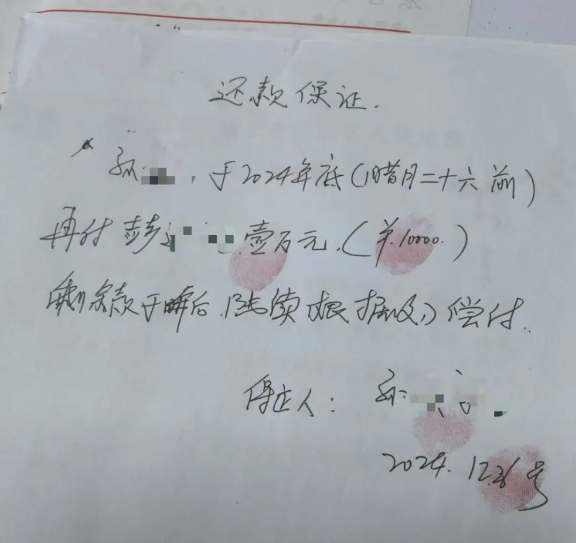 还款保证.
孙 , 于2024年底(腊月二十六前)
再付彭 壹万元.(¥.10000.)
剩余款于 后.陆续(根据 )偿付.
保证人: 孙
2024.12.26号